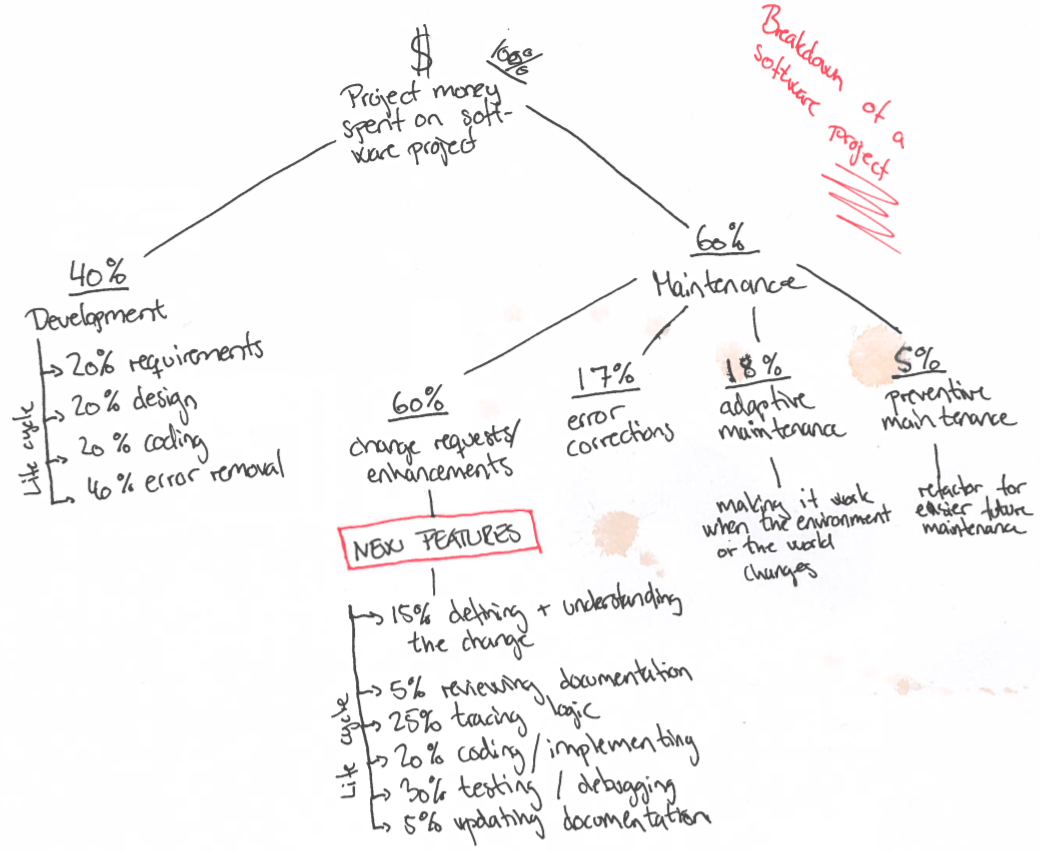 $
100%
Project money
spent on soft-
ware project
Breakdown of a
software
project
40%
Development
Life cycle
20% requirements
20% design
20% coding
40% error removal
60%
Maintenance
60%
change requests/
enhancements
NEW FEATURES
Life cycle
15% defining + understanding
the change
5% reviewing documentation
25% tracing logic
20% coding / implementing
30% testing / debugging
5% updating documentation
17%
error
corrections
18%
adaptive
maintenance
making it work
when the environment
or the world
changes
5%
preventive
maintenance
refactor for
easier future
maintenance